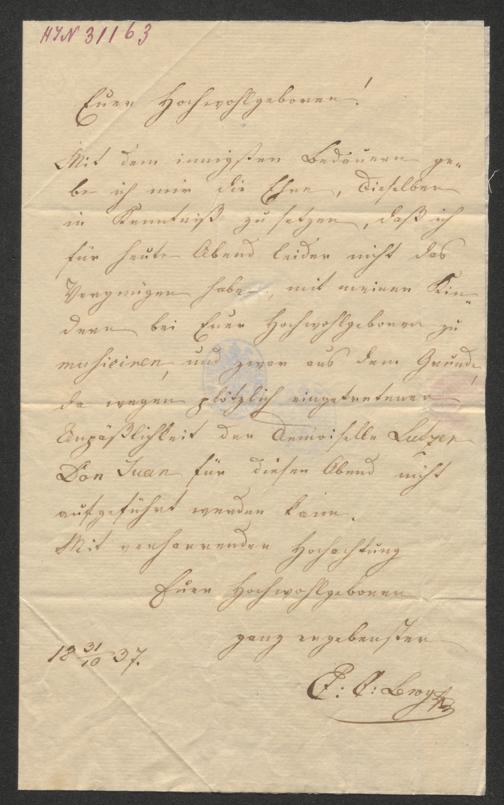 HIN 31163
Euer Hochwohlgeboren!
Mit dem innigsten Bedauern ge-
be ich mir die Ehre, Dieselben
in Kenntniß zu setzen, daß ich
für heute Abend leider nicht das
Vergnügen habe, mit meinen Kin-
dern bei Euer Hochwohlgeboren zu
musiciren, und zwar aus dem Grunde,
da wegen plötzlich eingetretener
Unpäßlichkeit der Demoiselle Lutzer
Don Juan für diesen Abend nicht
aufgeführt werden kann.
Mit verharrender Hochachtung
Euer Hochwohlgeboren
ganz ergebenster
18 31/10 37.